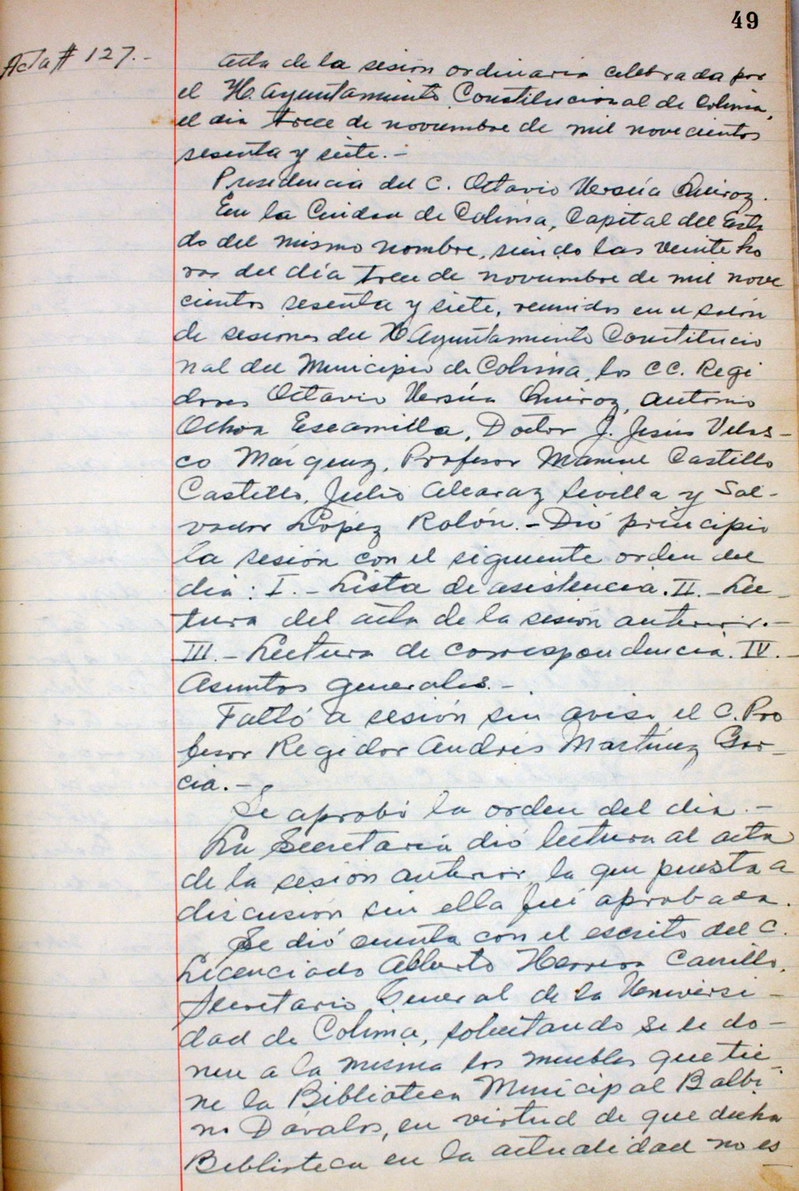 49
Acta # 127.-
Acta de la sesión ordinaria celebrada por
el H. Ayuntamiento Constitucional de Colima,
el día trece de noviembre de mil novecientos
sesenta y siete.-
Presidencia del C. Octavio Ursúa Quiroz.
En la Ciudad de Colima, Capital del Esta
do del mismo nombre, siendo las veinte ho
ras del día trece de noviembre de mil nove
cientos sesenta y siete, reunidos en el salón
de sesiones del H Ayuntamiento Constitucio
nal del Municipio de Colima, los CC. Regi
dores Octavio Ursúa Quiroz, Antonio
Ochoa Escamilla, Doctor J. Jesús Velas-
co Márquez, Profesor Manuel Castillo
Castillo, Julio Alcaraz Sevilla y Sal-
vador López Rolón.- Dió principio
la sesión con el siguiente orden del
día: I.- Lista de asistencia. II.- Lec-
tura del acta de la sesión anterior.-
III.- Lectura de correspondencia. IV.-
Asuntos generales.-
Faltó a sesión sin aviso el C. Pro
fesor Regidor Andrés Martínez Gar-
cía.-
Se aprobó la orden del día.-
La Secretaría dió lectura al acta
de la sesión anterior la que puesta a
discusión sin ella fué aprobada.
Se dió cuenta con el escrito del C.
Licenciado Alberto Herrera Carrillo,
Secretario General de la Universi-
dad de Colima, solicitando se le do-
nen a la misma los muebles que tie-
ne la Biblioteca Municipal Balbi
no Davalos, en virtud de que dicha
Biblioteca en la actualidad no es